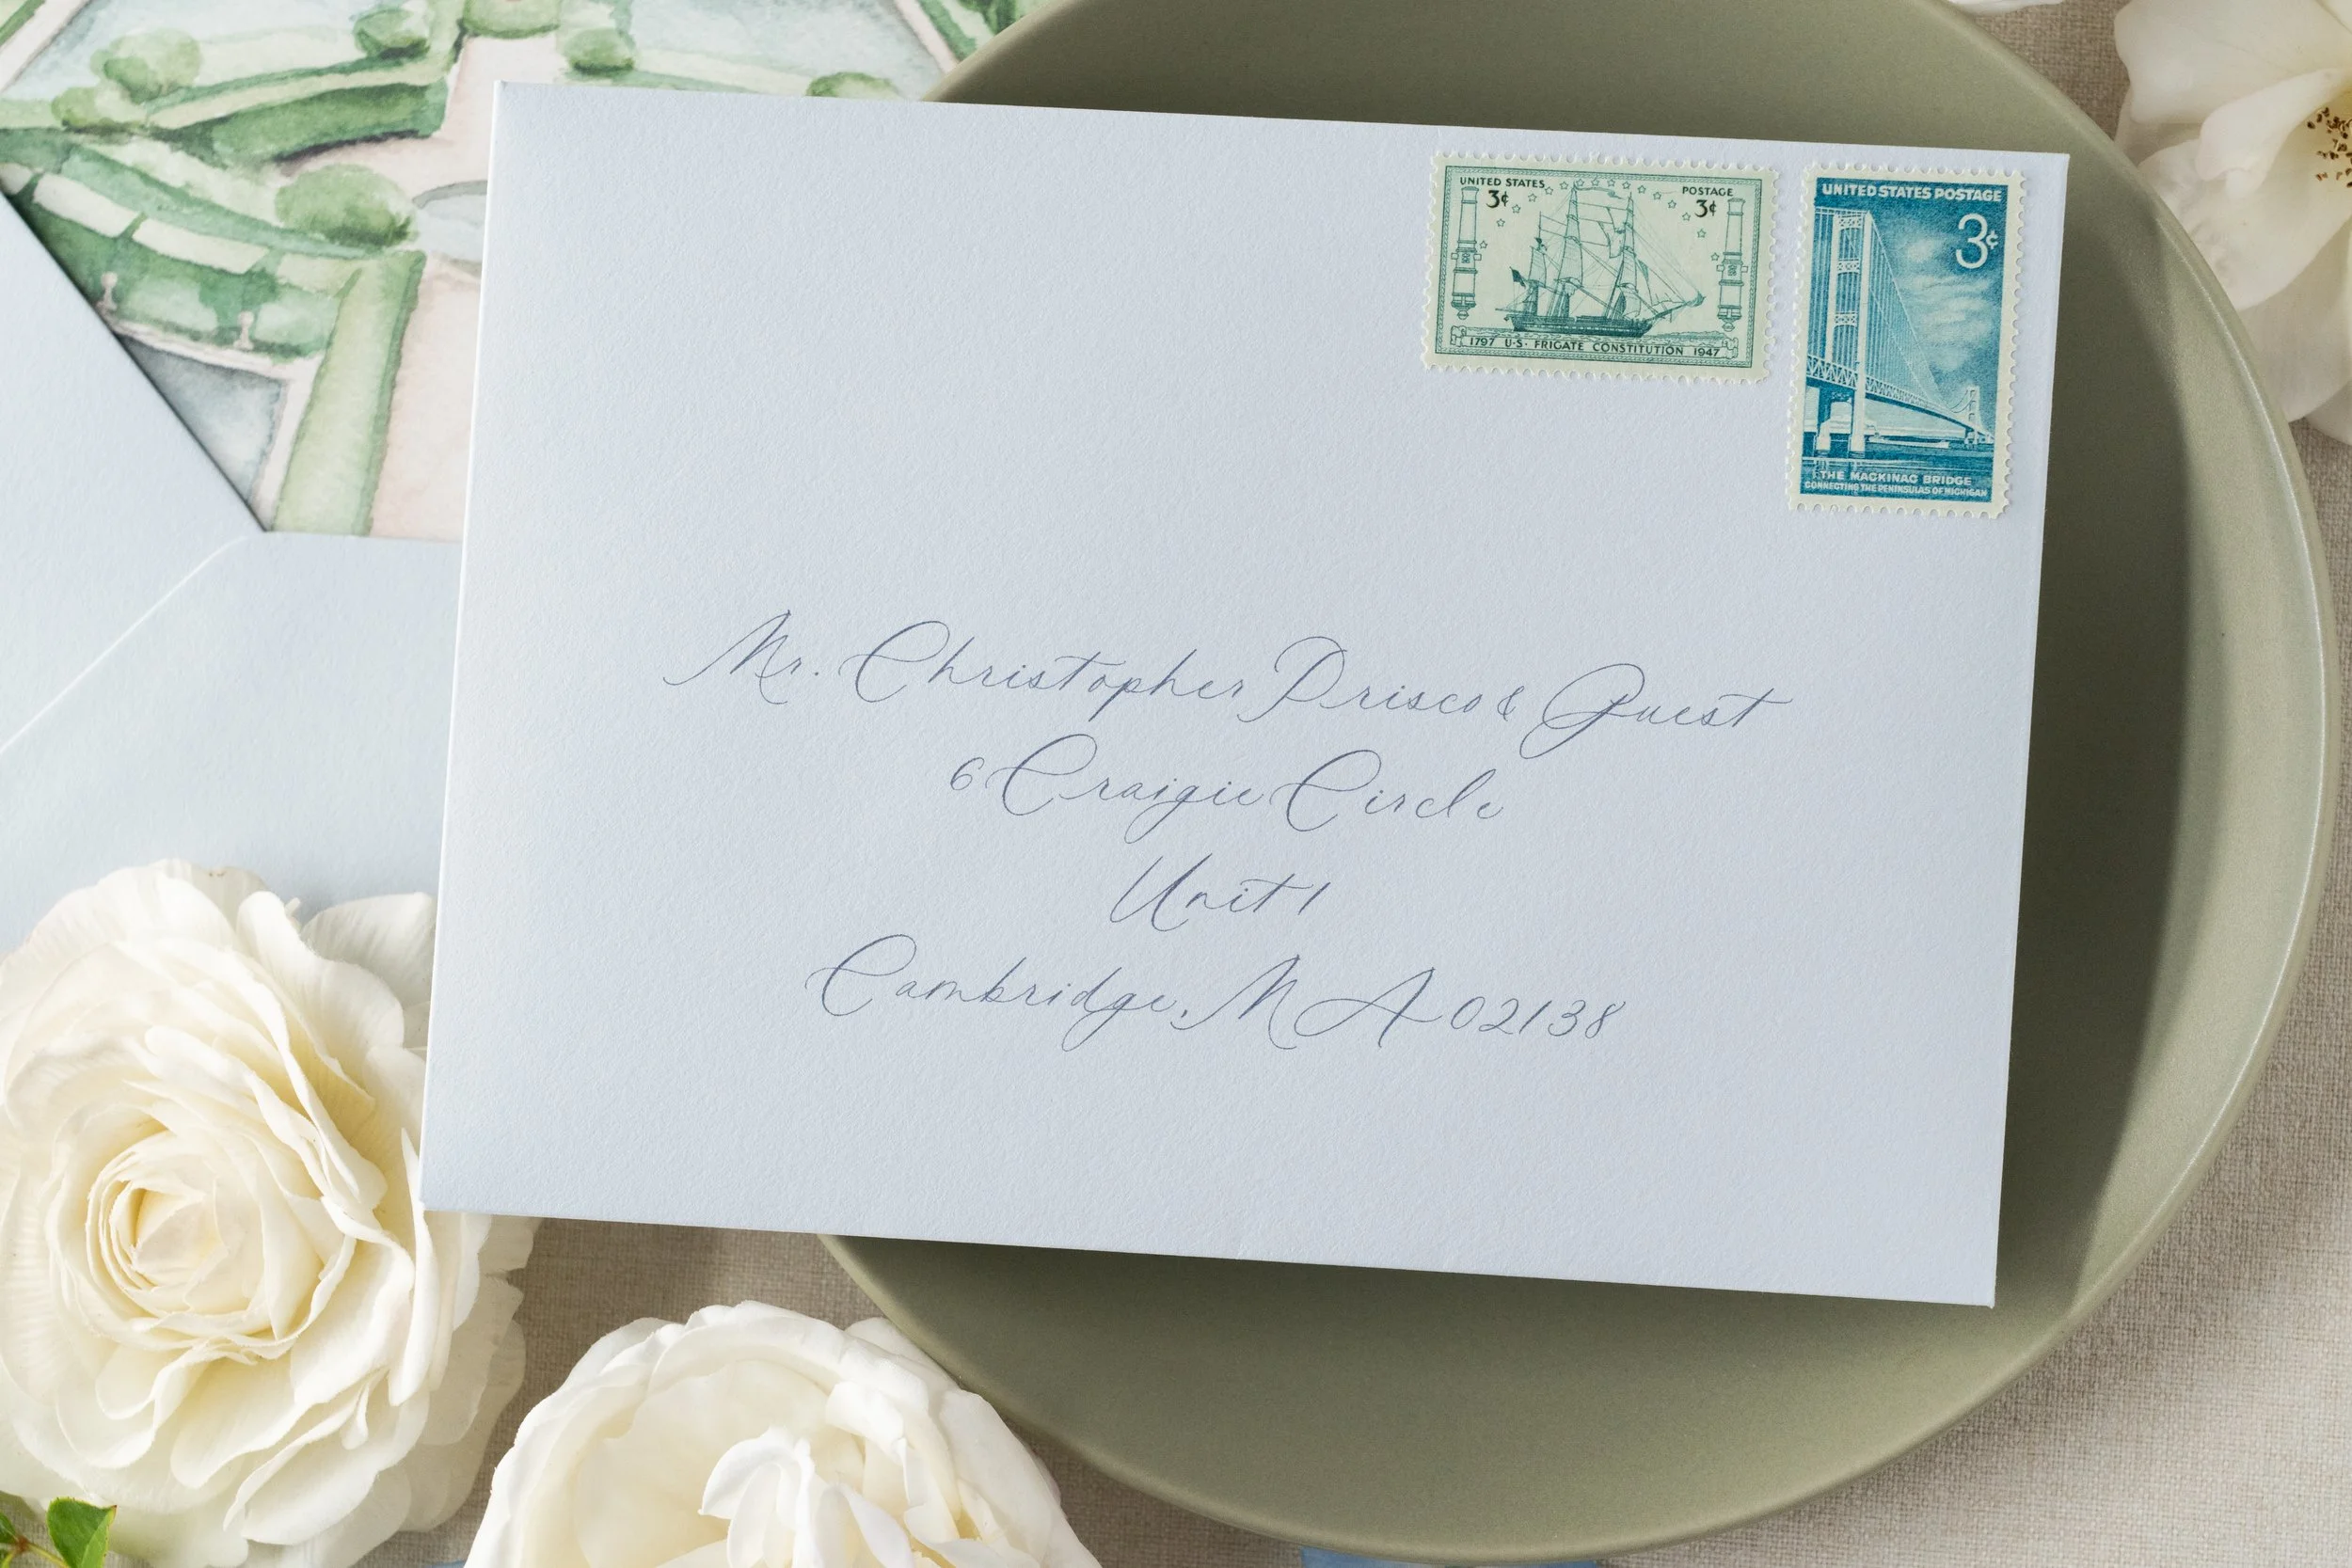 UNITED STATES POSTAGE
3¢ 3¢
1797 U·S· FRIGATE CONSTITUTION 1947
UNITED STATES POSTAGE
3¢
THE MACKINAC BRIDGE
CONNECTING THE PENINSULAS OF MICHIGAN
Mr. Christopher Prisco & Guest
6 Craigie Circle
Unit 1
Cambridge, MA 02138